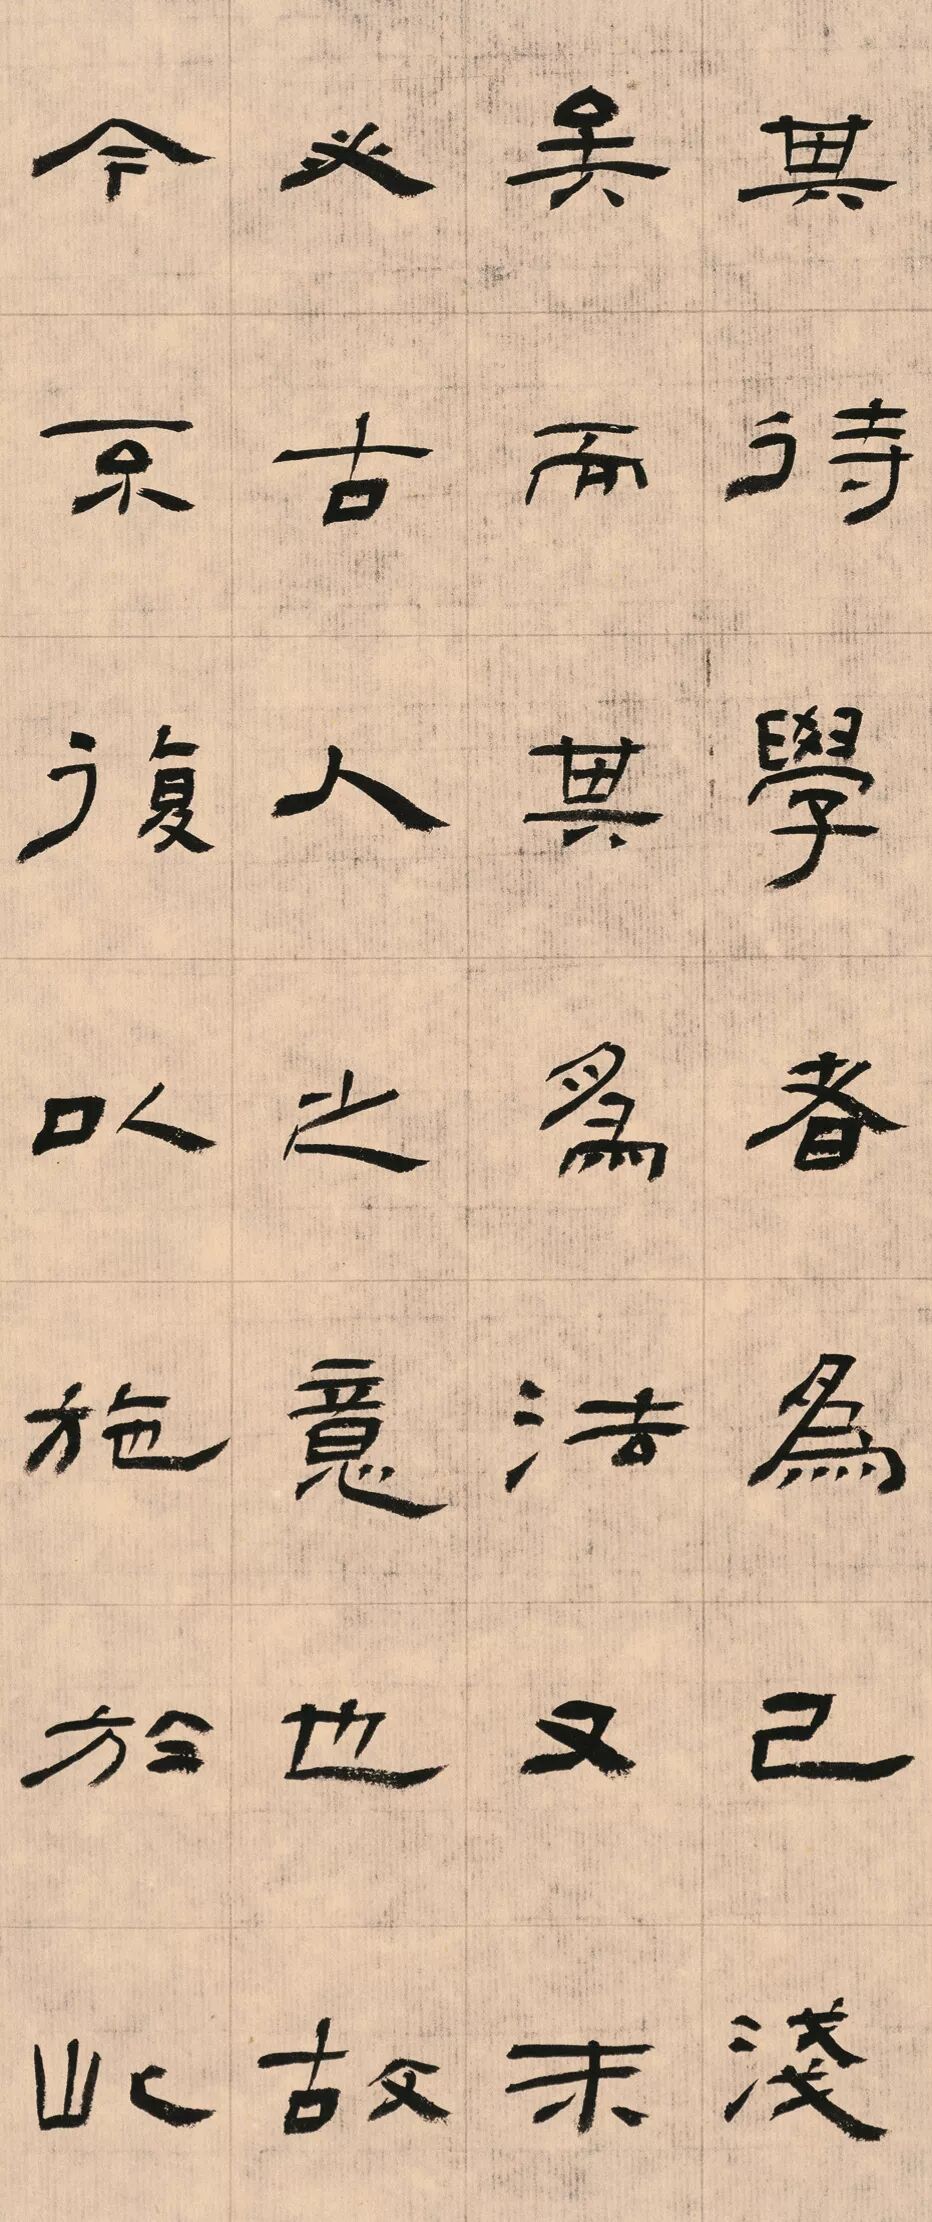 其待學者為己淺
矣而其為法又未
必古人之意也故
今不復以施於此